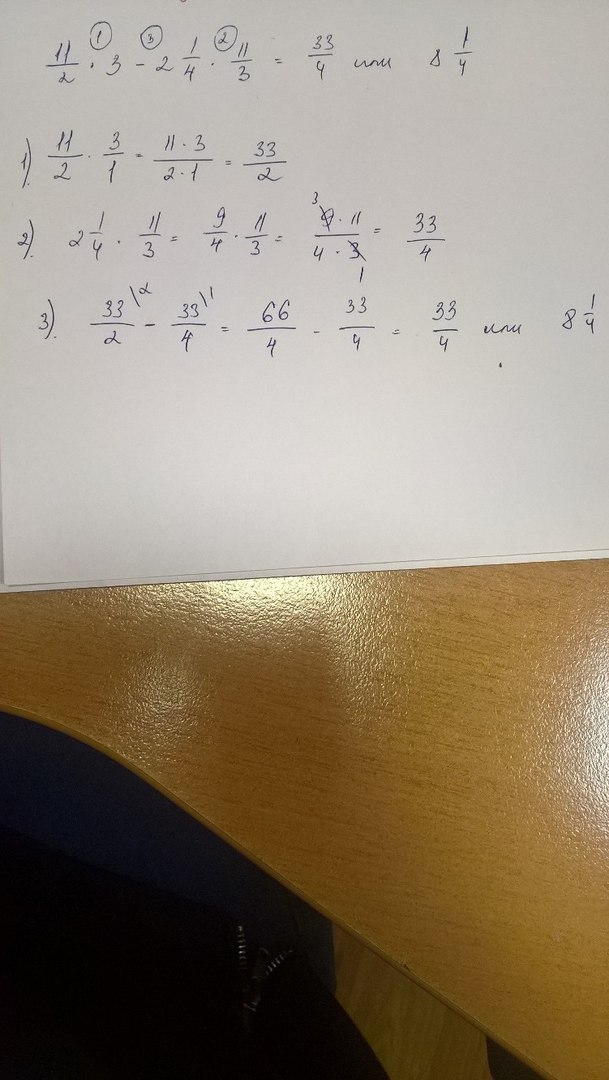 11/2 · 3 - 2 1/4 · 11/3 = 33/4 или 8 1/4
1) 11/2 · 3/1 = 11 · 3/2 · 1 = 33/2
2) 2 1/4 · 11/3 = 9/4 · 11/3 = 9 · 11/4 · 3 = 33/4
3) 33/2 \2 - 33/4 \1 = 66/4 - 33/4 = 33/4 или 8 1/4